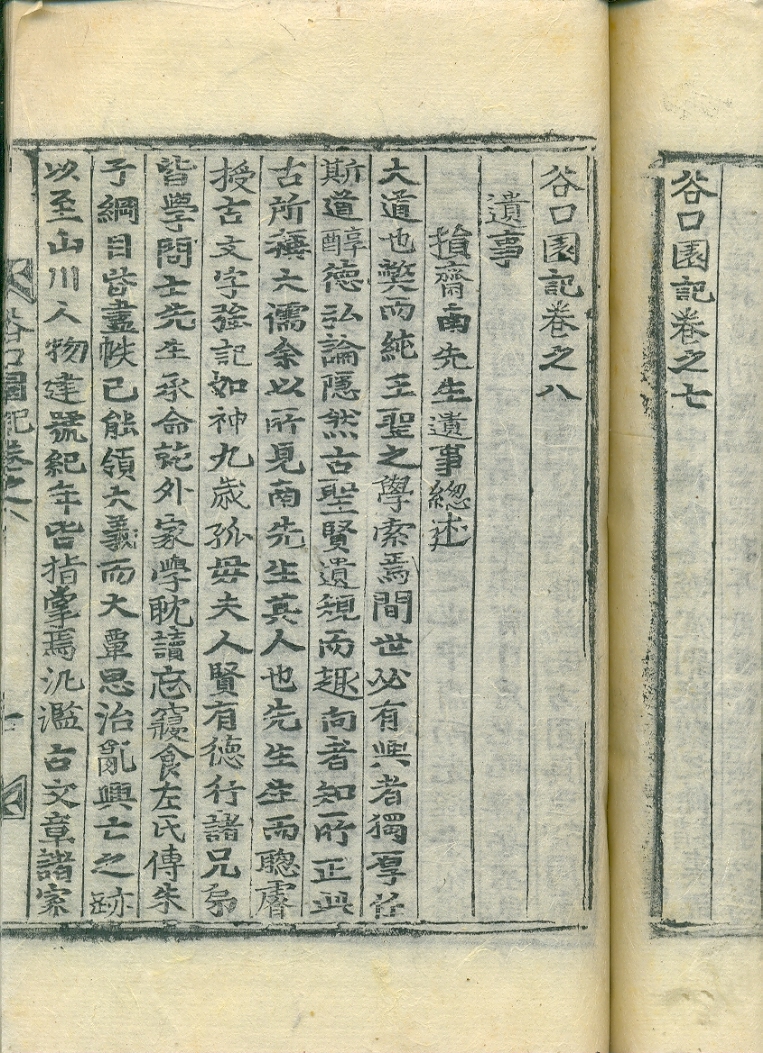 谷口園記卷之七
谷口園記卷之八
遺事
損齋南先生遺事緫述
大道也斃而純王聖之學索焉間世必有興者獨專任
斯道醇德弘論隱然古聖賢遺䂓而趣向者知所正此
古所稱大儒余以所見南先生其人也先生生而聰睿
授古文字强記如神九歲孤母夫人賢有德行諸兄弟
皆學問士先生承命就外家學耽讀忘寢食左氏傳朱
子綱目皆盡帙已能領大義而大覃思治亂興亡之跡
以至山川人物建號紀年皆指掌焉汎濫古文章諸家
谷口園記卷之八 一